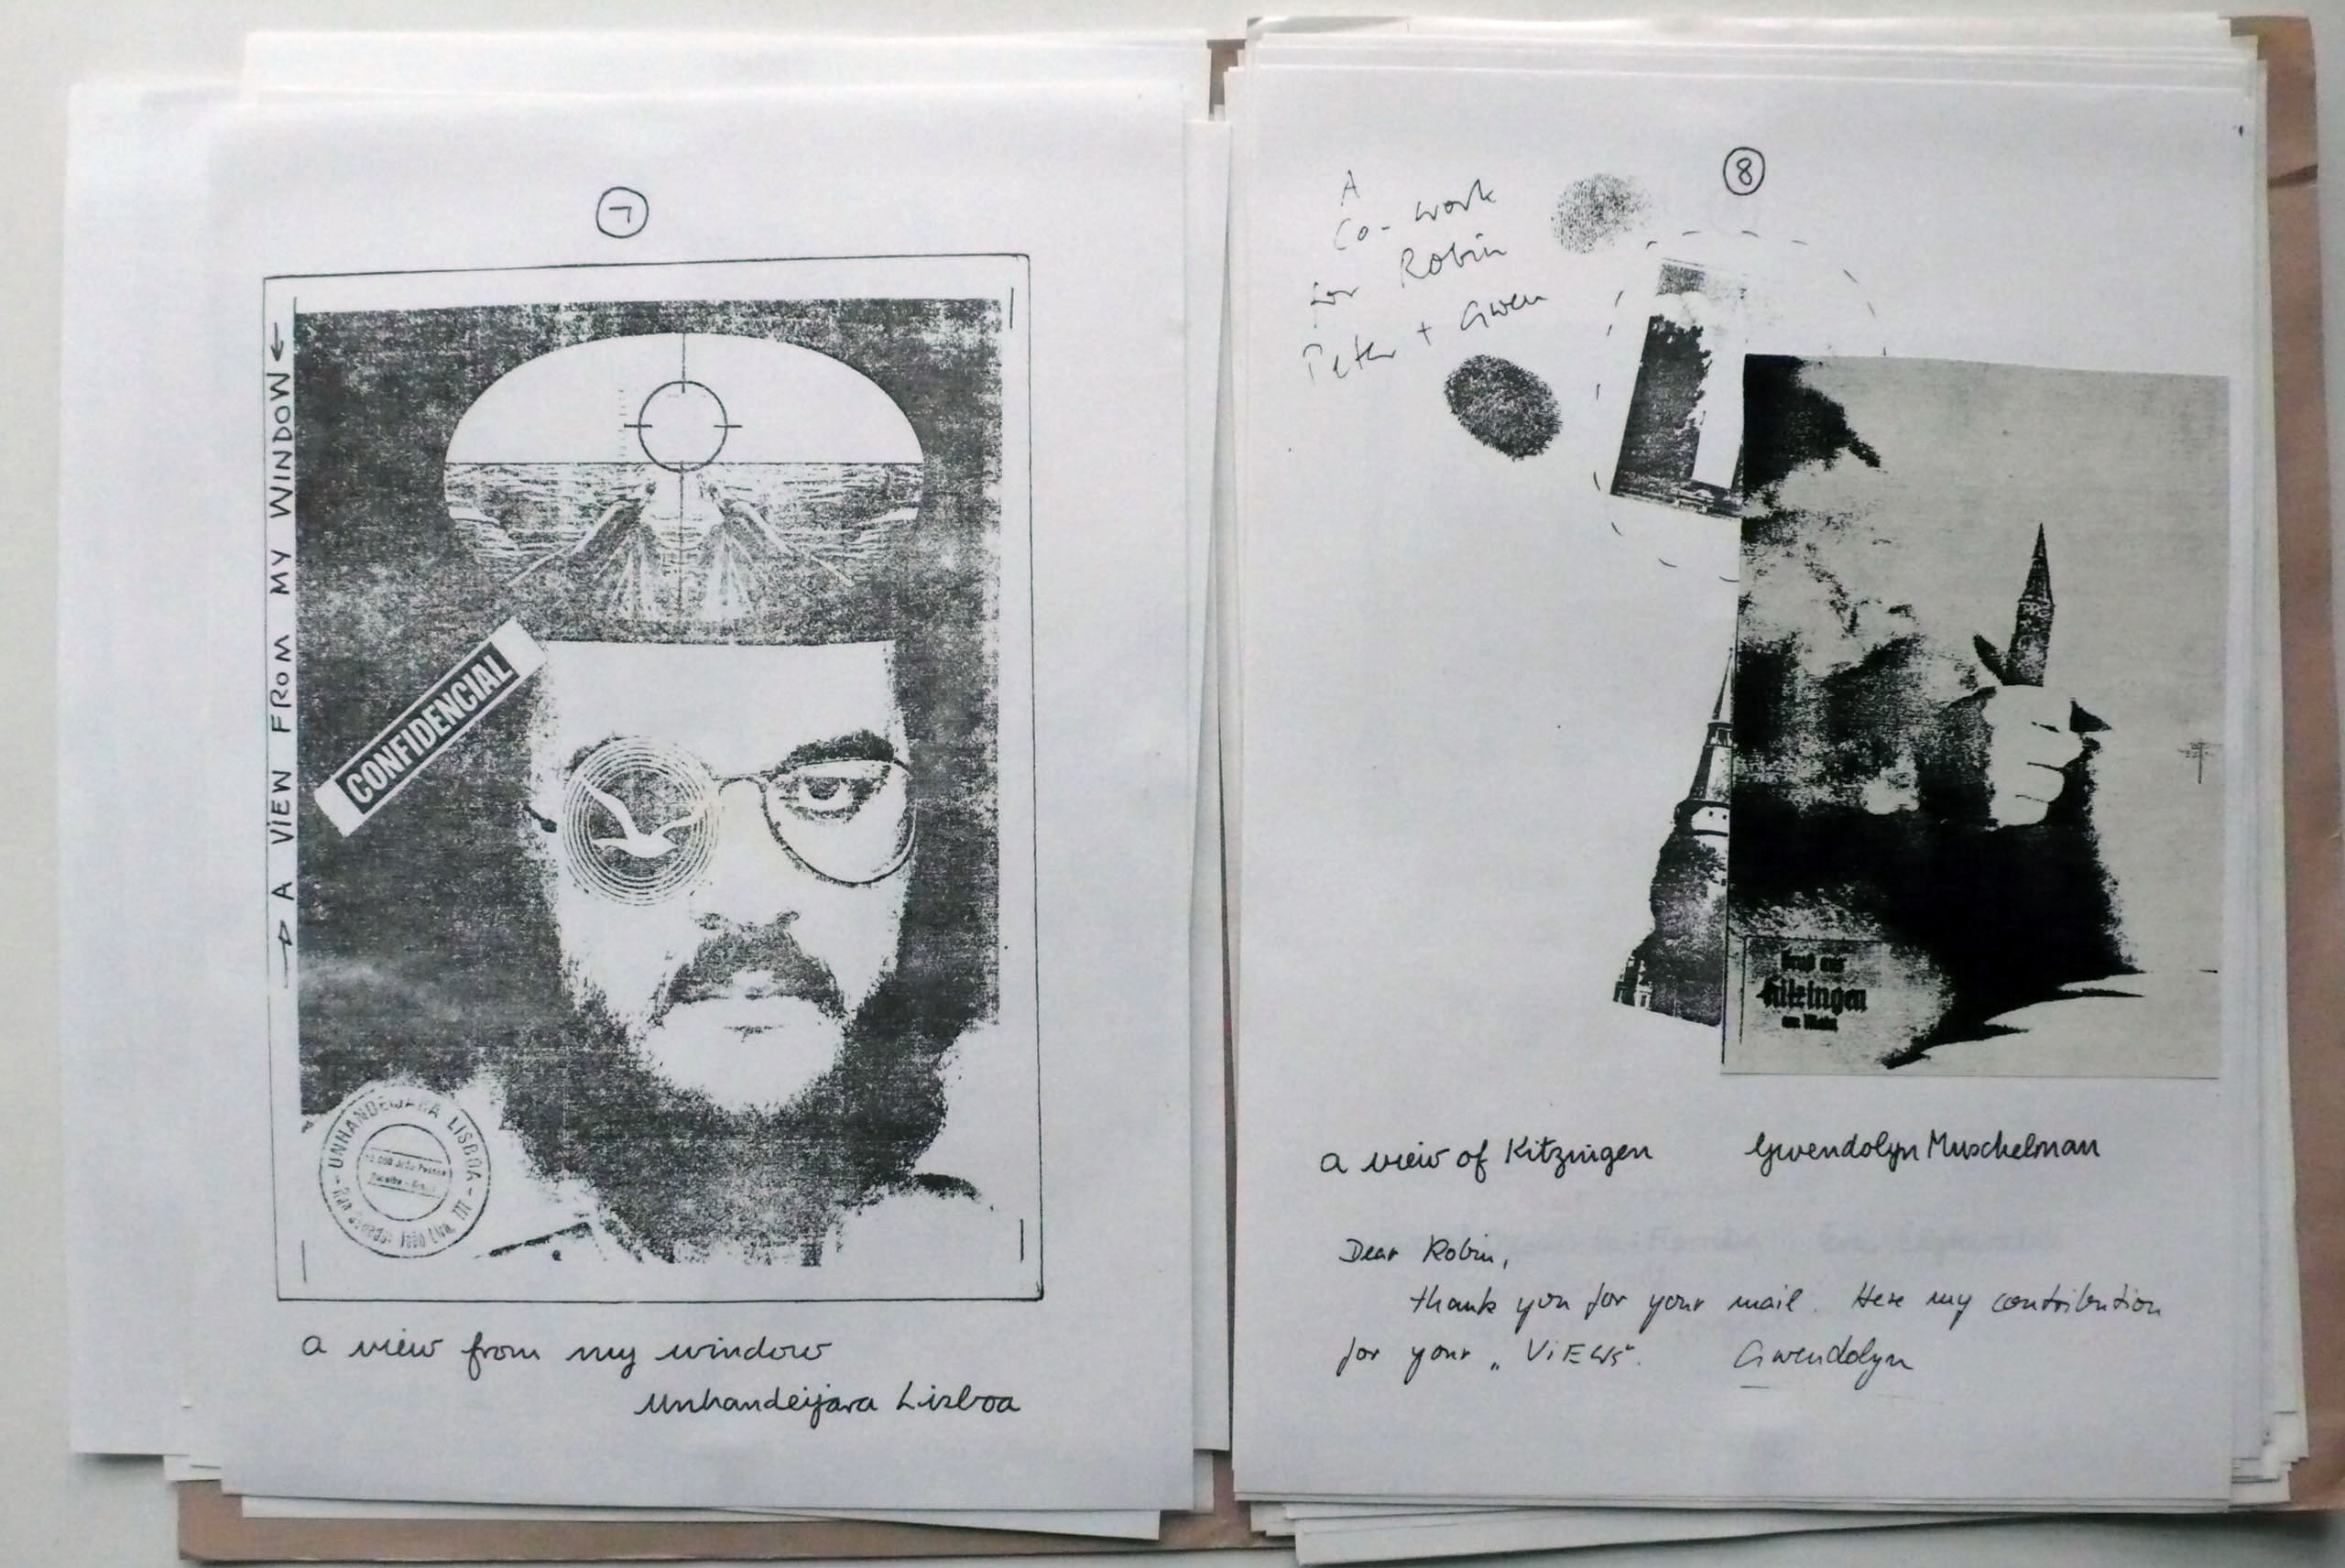 7
→ A VIEW FROM MY WINDOW ←
CONFIDENCIAL
UNHANDEIJARA LISBOA
João Lira, 777
a view from my window
Unhandeijara Lisboa
8
A
Co-work
for Robin
Peter + Gwen
Gruß aus
Kitzingen
am Main
a view of Kitzingen Gwendolyn Muschelman
Dear Robin,
thank you for your mail. Here my contribution
for your „ViEWS“. Gwendolyn